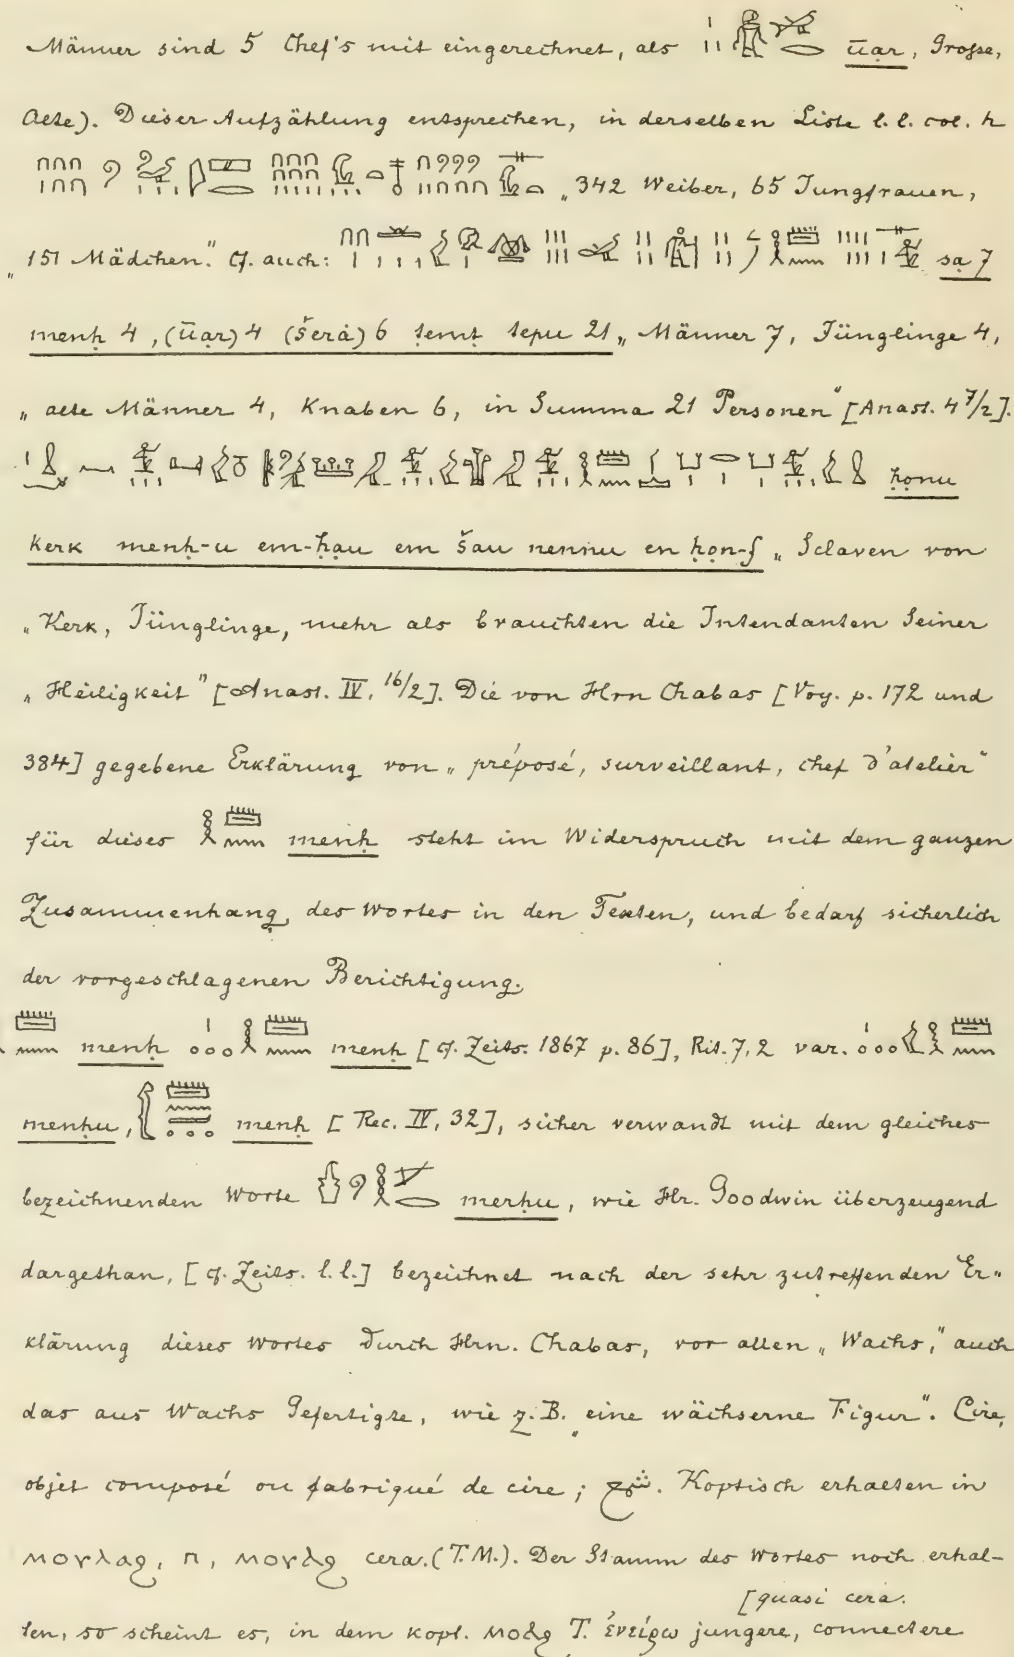 Männer sind 5 Chef's mit eingerechnet, als ūar, Große,
Alte). Dieser Aufzählung entsprechen, in derselben Liste l. l. col. h
„342 Weiber, 65 Jungfrauen,
„151 Mädchen." Cf. auch: sa 7
menḥ 4, (ūar) 4 (šerȧ) 6 temt tepu 21 „Männer 7, Jünglinge 4,
„alte Männer 4, Knaben 6, in Summa 21 Personen" [Anast. 4 7/2].
ḥonu
Kerk menḥ-u em-ḥau em šau nennu en ḥon-f „Sclaven von
„Kerk, Jünglinge, mehr als brauchten die Intendanten Seiner
„Heiligkeit" [Anast. IV, 16/2]. Die von Hrn Chabas [Voy. p. 172 und
384] gegebene Erklärung von „préposé, surveillant, chef d'atelier"
für dieses menḥ steht im Widerspruch mit dem ganzen
Zusammenhang des Wortes in den Texten, und bedarf sicherlich
der vorgeschlagenen Berichtigung.
menḥ menḥ [cf. Zeits. 1867 p. 86], Rit. 7, 2 var.
menḥu, menḥ [Rec. IV, 32], sicher verwandt mit dem gleiches
bezeichnenden Worte merḥu, wie Hr. Goodwin überzeugend
dargethan, [cf. Zeits. l. l.] bezeichnet nach der sehr zutreffenden Er-
klärung dieses Wortes durch Hrn. Chabas, vor allen „Wachs," auch
das aus Wachs Gefertigte, wie z. B. „eine wächserne Figur". Cire,
objet composé ou fabriqué de cire; شمع. Koptisch erhalten in
ⲙⲟⲩⲗⲁϩ, ⲡ, ⲙⲟⲩⲗϩ cera. (T. M.). Der Stamm des Wortes noch erhal-
[quasi cera.
ten, so scheint es, in dem kopt. ⲙⲟⲗϩ T. ἐνείρω jungere, connectere